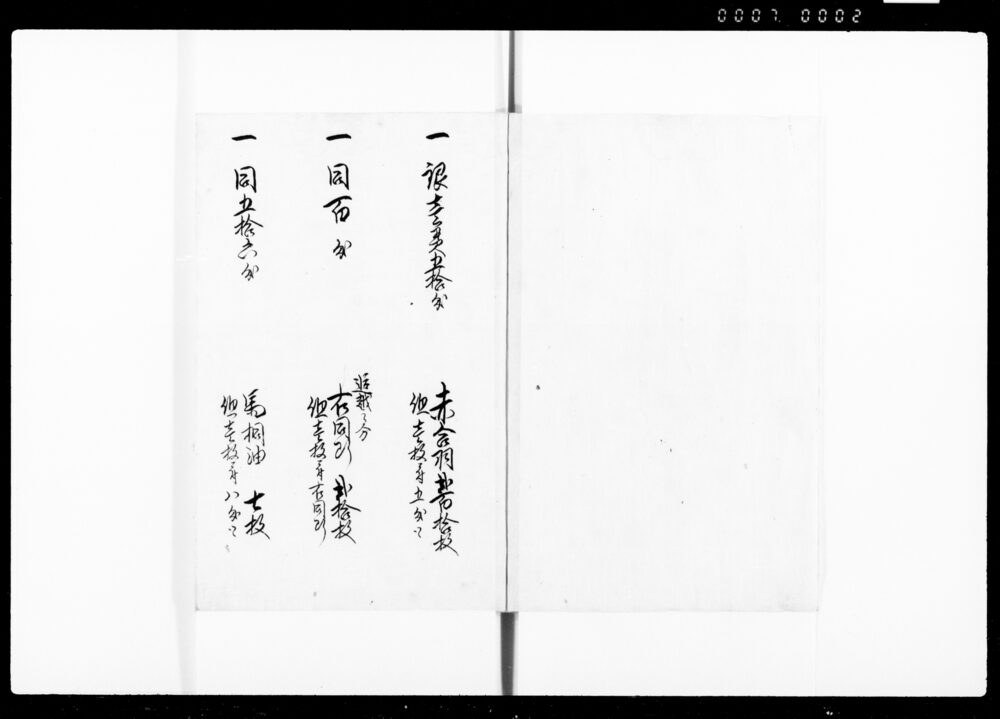 0007 0002
一 銀壱貫五拾匁
赤合羽 弐百拾枚
但壱枚ニ付五匁ツヽ
一 同百匁
右同断 弐拾枚
但壱枚ニ付右同断
一 同五拾六匁
馬桐油 七枚
但壱枚ニ付八匁ツヽ